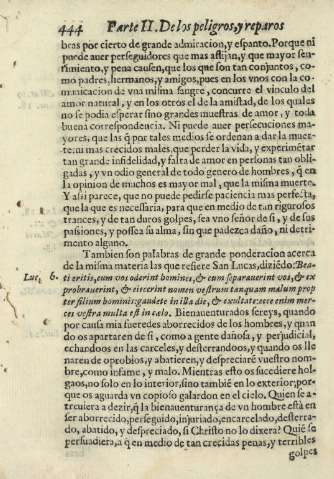 444 Parte II. De los peligros, y reparos
bras por cierto de grande admiracion, y espanto. Porque ni
puede auer perseguidores que mas aflijan, y que mayor sen-
timiento, y pena causen, que los que son tan conjuntos, co-
mo padres, hermanos, y amigos, pues en los vnos con la co-
municacion de vna misma sangre, concurre el vinculo del
amor natural, y en los otros el de la amistad, de los quales
no se podia esperar sino grandes muestras de amor, y toda
buena correspondencia. Ni puede auer persecuciones ma-
yores, que las q̃ por tales medios se ordenan a dar la muer-
te: ni mas crecidos males, que perder la vida, y experimẽtar
tan grande infidelidad, y falta de amor en personas tan obli-
gadas, y vn odio general de todo genero de hombres, q̃ en
la opinion de muchos es mayor mal, que la misma muerte.
Y assi parece, que no puede pedirse paciencia mas perfecta,
que la que es necessaria, para que en medio de tan rigurosos
trances, y de tan duros golpes, sea vno señor de si, y de sus
passiones, y possea su alma, sin que padezca daño, ni detri-
mento alguno.
Tambien son palabras de grande ponderacion acerca
de la misma materia las que refiere San Lucas, diziẽdo: Bea-
Luc. 6. ti eritis, cum vos oderint homines, & cum separauerint vos, & ex
probrauerint, & eiecerint nomen vestrum tanquam malum prop
ter filium hominis: gaudete in illa die, & exultate: ecce enim mer-
ces vestra multa est in cælo. Bienauenturados sereys, quando
por causa mia fueredes aborrecidos de los hombres, y quan
do os apartaren de si, como a gente dañosa, y perjudicial,
echandoos en las carceles, y desterrandoos, y quando os lle
naren de oprobios, y abatieren, y despreciarẽ vuestro nom-
bre, como infame, y malo. Mientras esto os sucediere hol-
gaos, no solo en lo interior, sino tambiẽ en lo exterior, por-
que os aguarda vn copioso galardon en el cielo. Quien se a-
treuiera a dezir, q̃ la bienauenturança de vn hombre está en
ser aborrecido, perseguido, injuriado, encarcelado, desterra-
do, abatido, y despreciado, si Christo no lo dixera? Quiẽ se
persuadiera, a q̃ en medio de tan crecidas penas, y terribles
golpes